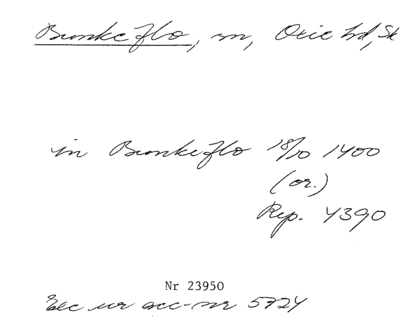 Bunkeflo, sn, Oxie hd, Sk
in Bunkeflo 18/10 1400
(or.)
Rep. 4390
Nr 23950
Exc ur acc-nr 5724